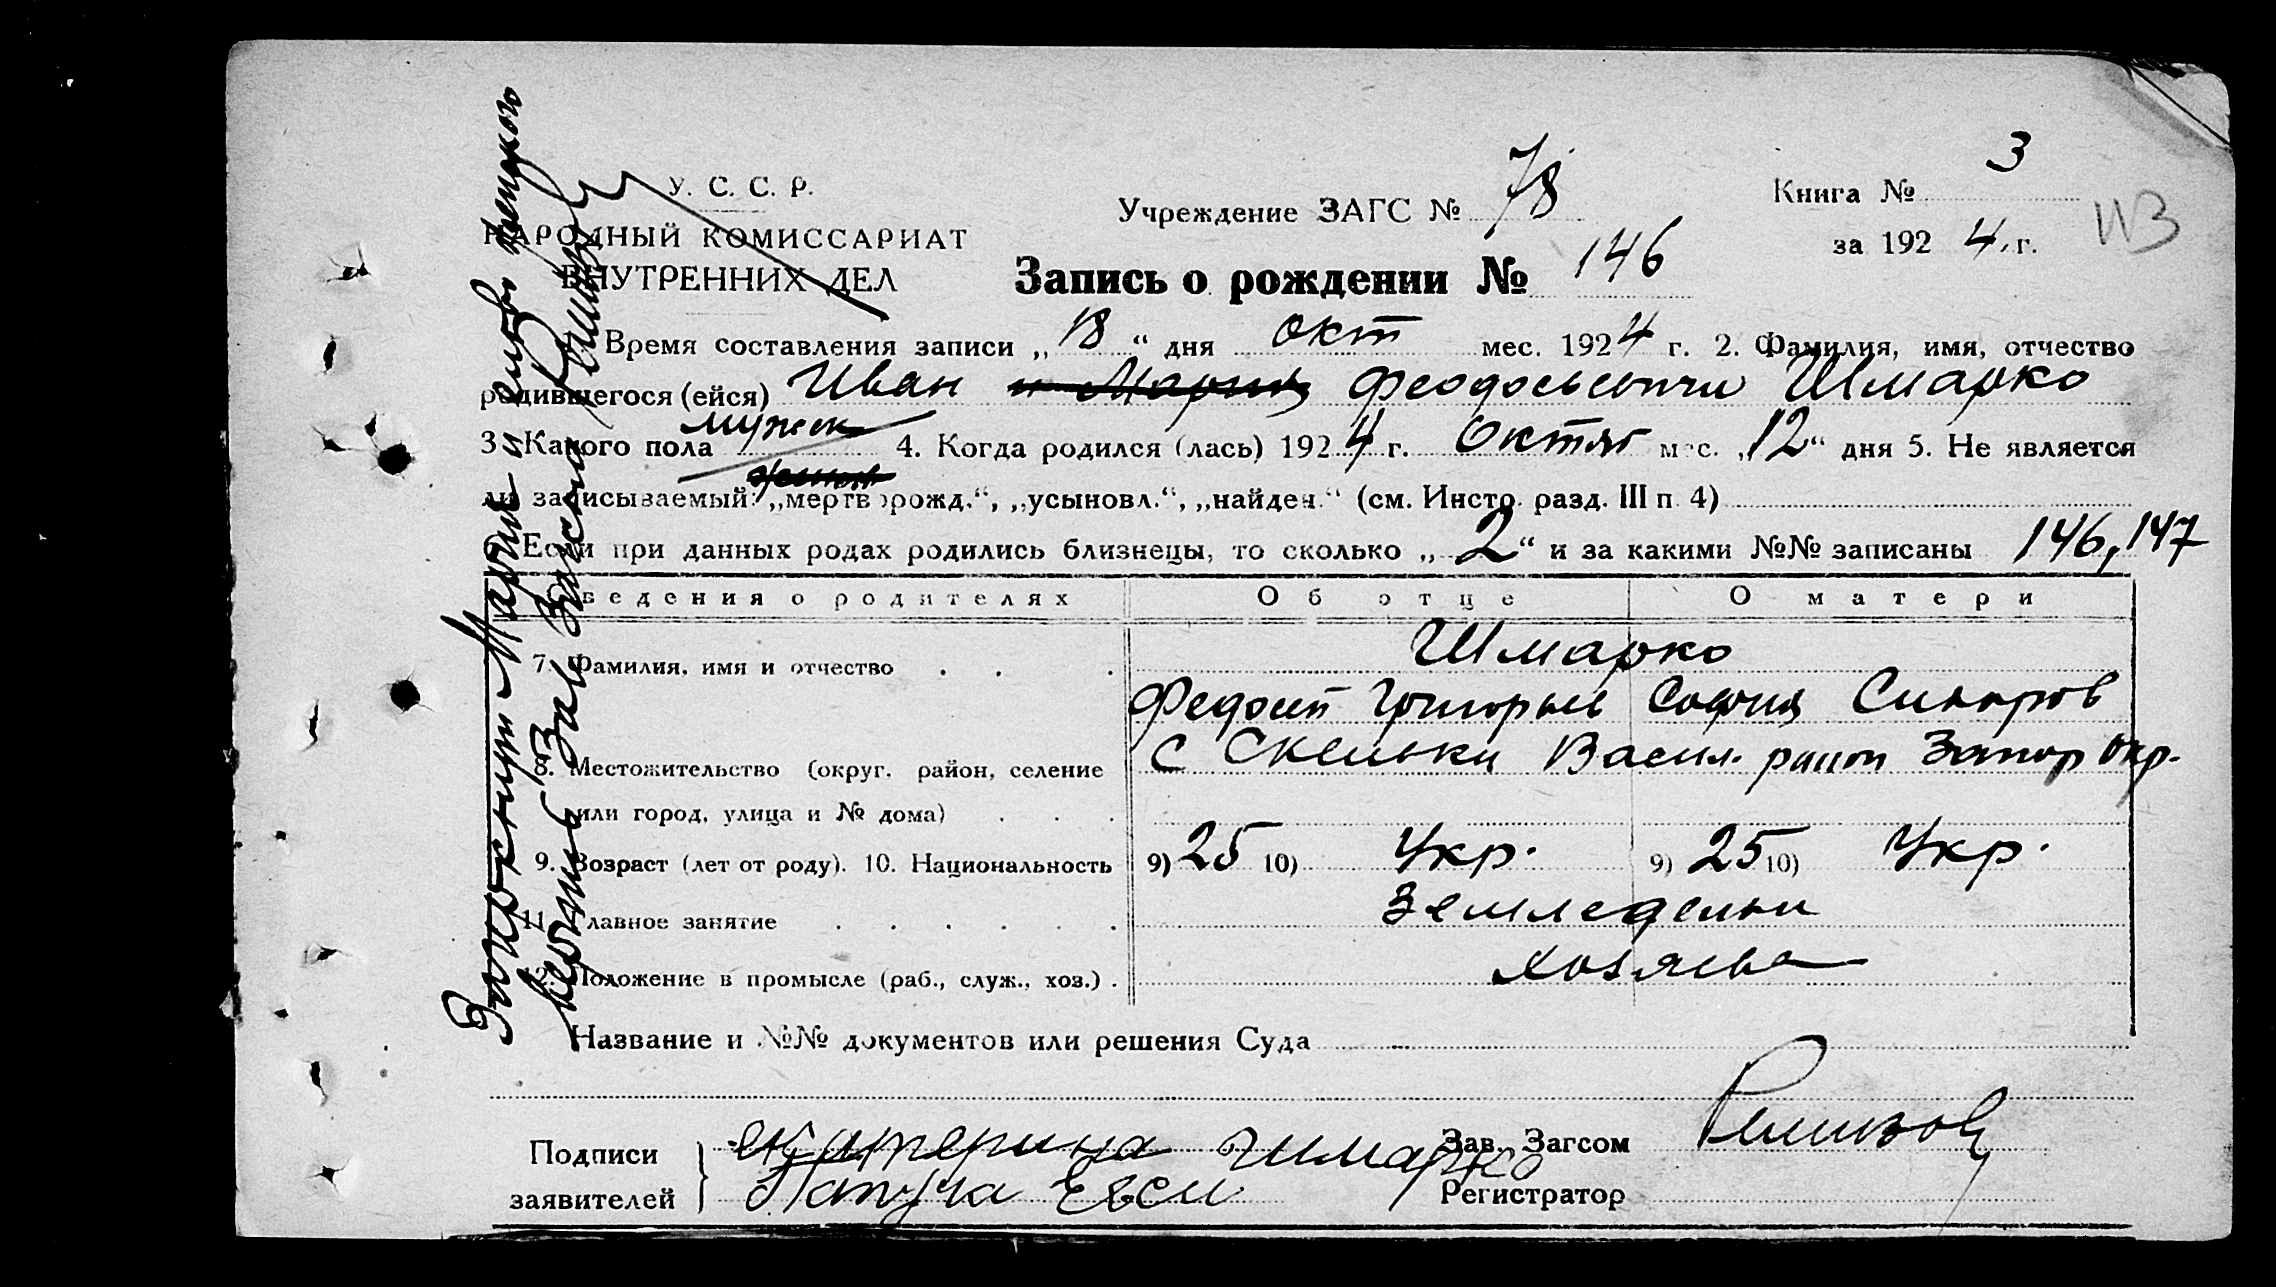 У. С. С. Р.
НАРОДНЫЙ КОМИССАРИАТ
ВНУТРЕННИХ ДЕЛ
Учреждение ЗАГС № 78
Книга № 3
за 1924 г.
Запись о рождении № 146
Время составления записи „18“ дня окт мес. 1924 г. 2. Фамилия, имя, отчество
родившегося (ейся) Иван и Мария Феодосьевичи Шмарко
3. Какого пола мужск 4. Когда родился (лась) 1924 г. Октяб мес. „12“ дня 5. Не является
женск
ли записываемый: „мертворожд.“, „усыновл.“, „найден.“ (см. Инстр. разд. III п. 4)
Если при данных родах родились близнецы, то сколько „2“ и за какими №№ записаны 146, 147
Сведения о родителях Об отце О матери
7. Фамилия, имя и отчество Шмарко
Федосий Григорьев София
8. Местожительство (округ, район, селение С Скельки Васил. район Запор окр.
или город, улица и № дома)
9. Возраст (лет от роду). 10. Национальность 9) 25 10) Укр. 9) 25 10) Укр.
11. Главное занятие Земледельцы
12. Положение в промысле (раб., служ., хоз.) хозяева
Название и №№ документов или решения Суда —
Подписи
заявителей
Екатерина Шмарко
Евси
Зав. Загсом
Регистратор
Зачеркнутому Мария и женск
верить Зав Загсом
ИЗ